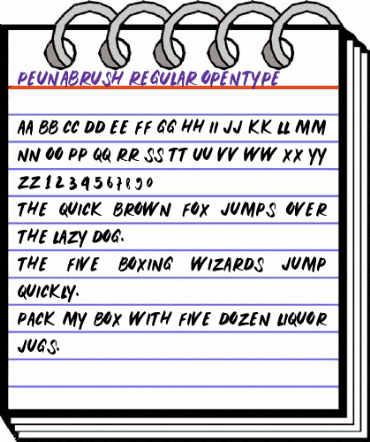 PEUNABRUSH REGULAR OPENTYPE
AA BB CC DD EE FF GG HH II JJ KK LL MM
NN OO PP QQ RR SS TT UU VV WW XX YY
ZZ 1 2 3 4 5 6 7 8 9 0
THE QUICK BROWN FOX JUMPS OVER
THE LAZY DOG.
THE FIVE BOXING WIZARDS JUMP
QUICKLY.
PACK MY BOX WITH FIVE DOZEN LIQUOR
JUGS.